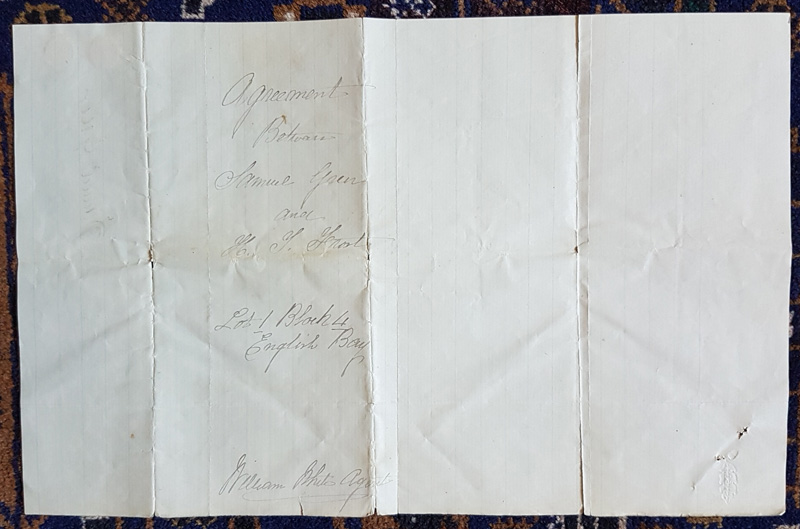 Agreement
Between
Samuel Greer
and
H. S. Frost
Lot 1 Block 4
English Bay
William White Agent